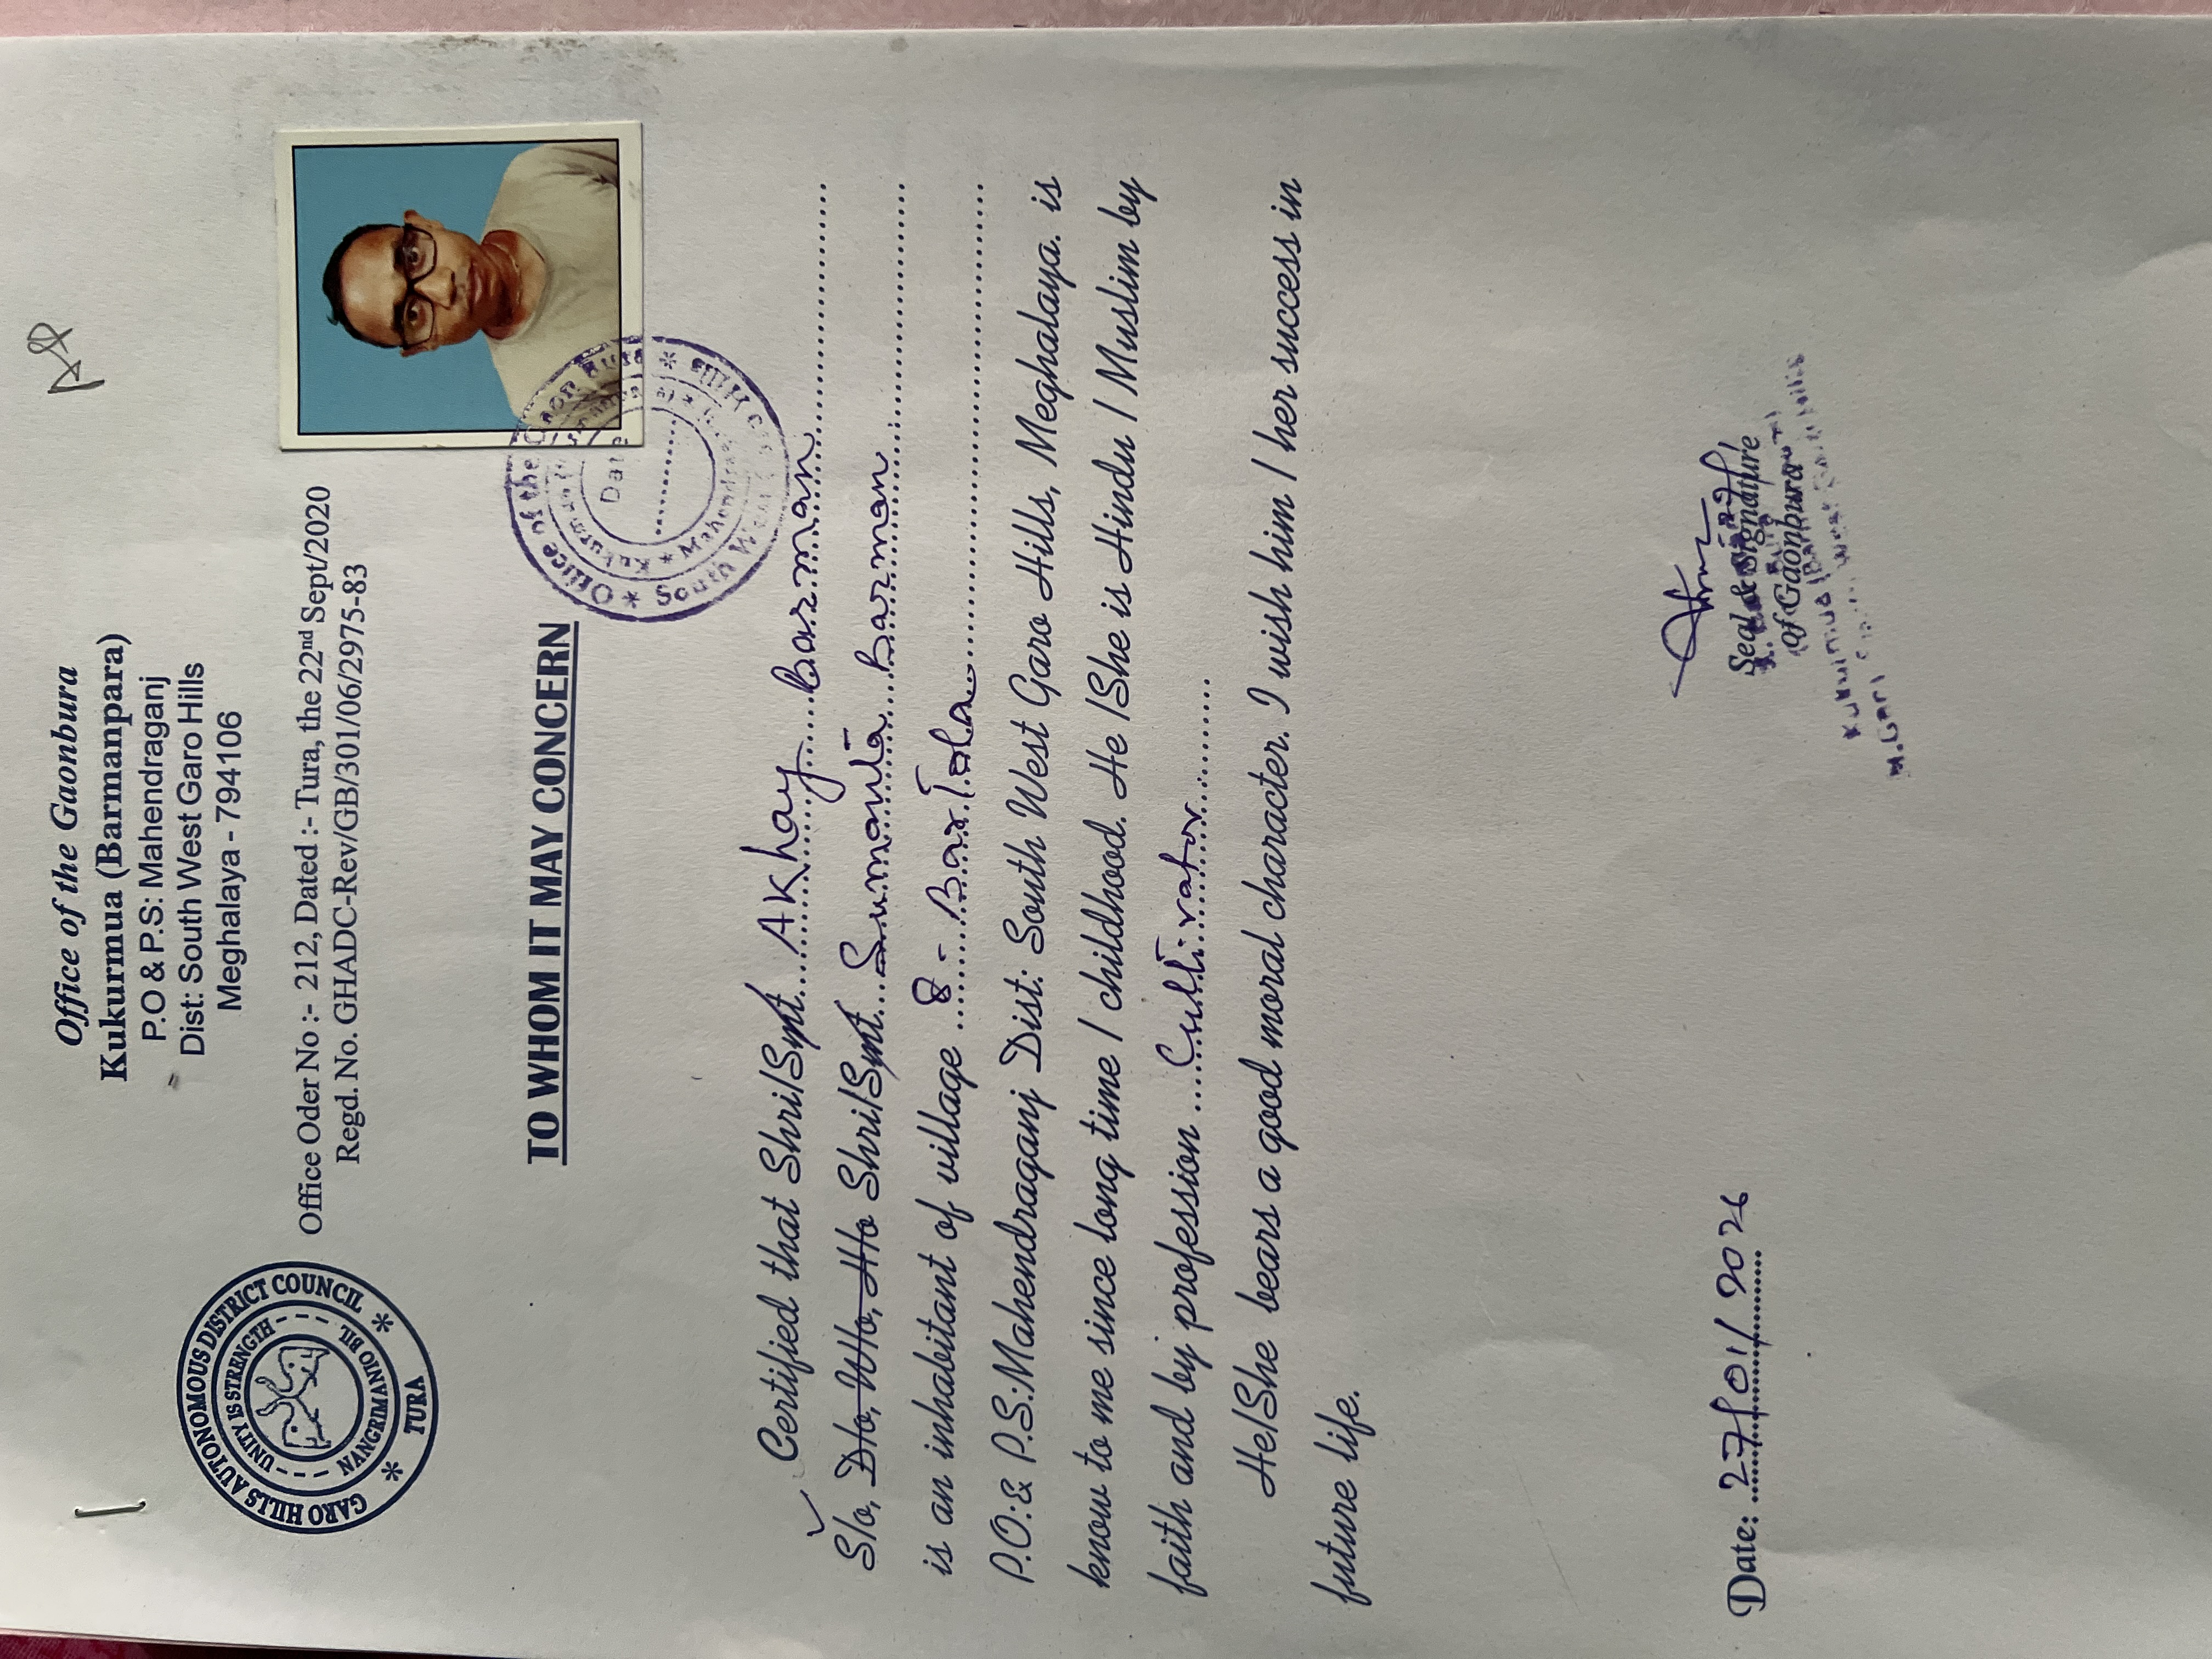 Office of the Gaonbura
Kukurmua (Barmanpara)
P.O & P.S: Mahendraganj
Dist: South West Garo Hills
Meghalaya - 794106
GARO HILLS AUTONOMOUS DISTRICT COUNCIL
UNITY IS STRENGTH
NANGRIMANIO BIL
* TURA *
Office Oder No :- 212, Dated :- Tura, the 22nd Sept/2020
Regd. No. GHADC-Rev/GB/301/06/2975-83
TO WHOM IT MAY CONCERN
* Office of the Gaon Bura *
Kukurmua
Date
* Mahendraganj
South West
Certified that Shri/Smt. AKhay Barman
S/o, D/o, W/o, H/o Shri/Smt. Sumanta Barman
is an inhabitant of village 8 - Bartola
P.O:& P.S:Mahendraganj Dist: South West Garo Hills, Meghalaya. is
know to me since long time / childhood. He /She is Hindu / Muslim by
faith and by profession Cultivator
He/She bears a good moral character. I wish him / her success in
future life.
Date: 27/01/2026
Seal & Signature
of Gaonbura